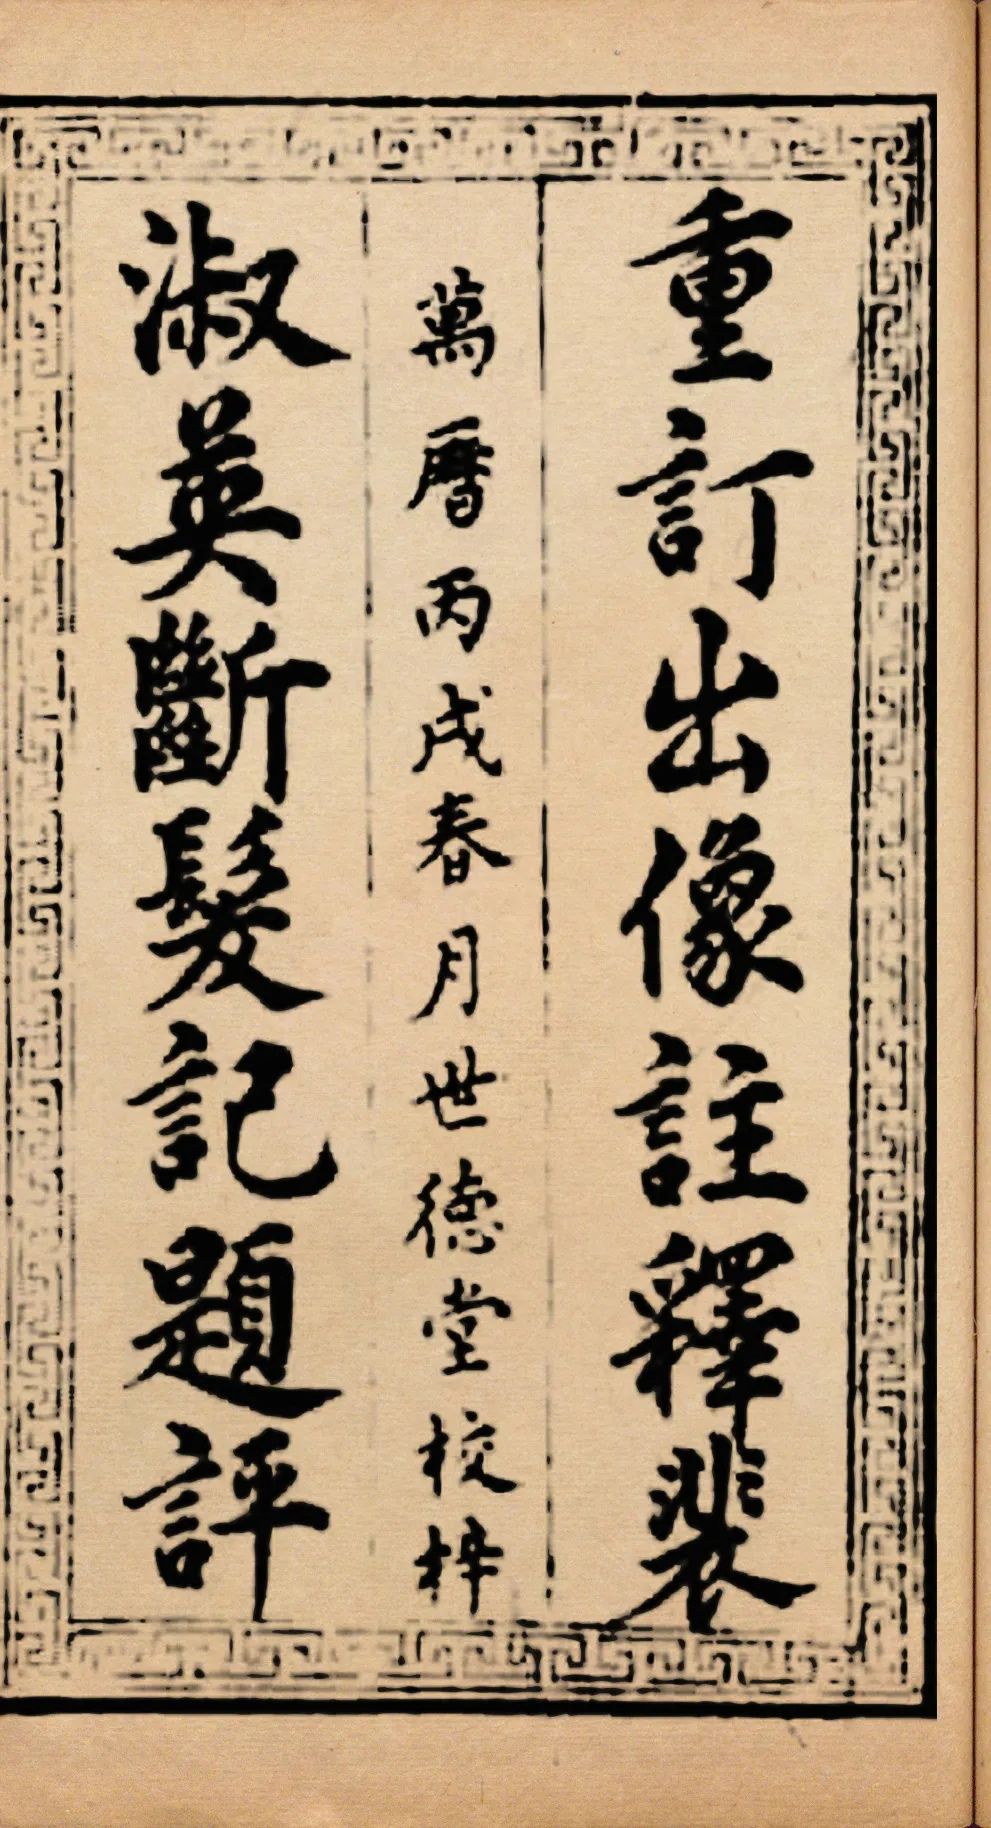 重訂出像註釋裴
萬曆丙戌春月世德堂校梓
淑英斷髮記題評